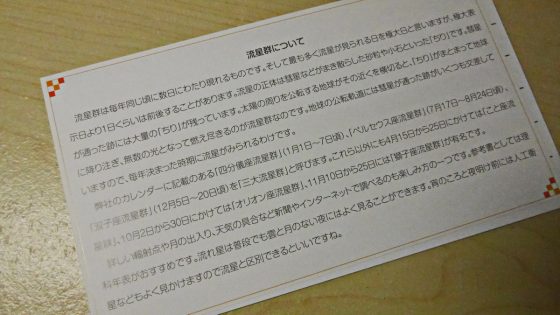 流星群について
流星群は毎年同じ頃に数日にわたり現れるものです。そして最も多く流星が見られる日を極大日と思いますが、極大表
示日より1日ぐらいは前後することがあります。流星の正体は彗星などがまき散らした砂粒や小石といった「ちり」です。彗星
が通った跡には大量の「ちり」が残っています。太陽の周りを公転する地球がその近くを横切ると、「ちり」がまとまって地球
に降り注ぎ、無数の光となって燃え尽きるのが流星群なのです。地球の公転軌道には彗星が通った跡がいくつも交差して
いますので、毎年決まった時期に流星がみられるわけです。
弊社のカレンダーに記載のある「四分儀座流星群」(1月1日〜7日頃)、「ペルセウス座流星群」(7月17日〜8月24日頃)、
「双子座流星群」(12月5日〜20日頃)を「三大流星群」と呼びます。これら以外にも4月15日から25日にかけては「こと座流
星群」、10月2日から30日にかけては「オリオン座流星群」、11月10日から25日には「獅子座流星群」が有名です。
詳しい輻射点や月の出入り、天気の具合など新聞やインターネットで調べるのも楽しみ方の一つです。参考書としては理
科年表がおすすめです。流れ星は普段でも雲と月のない夜にはよく見ることができます。宵のころと夜明け前には人工衛
星などもよく見かけますので流星と区別できるといいですね。